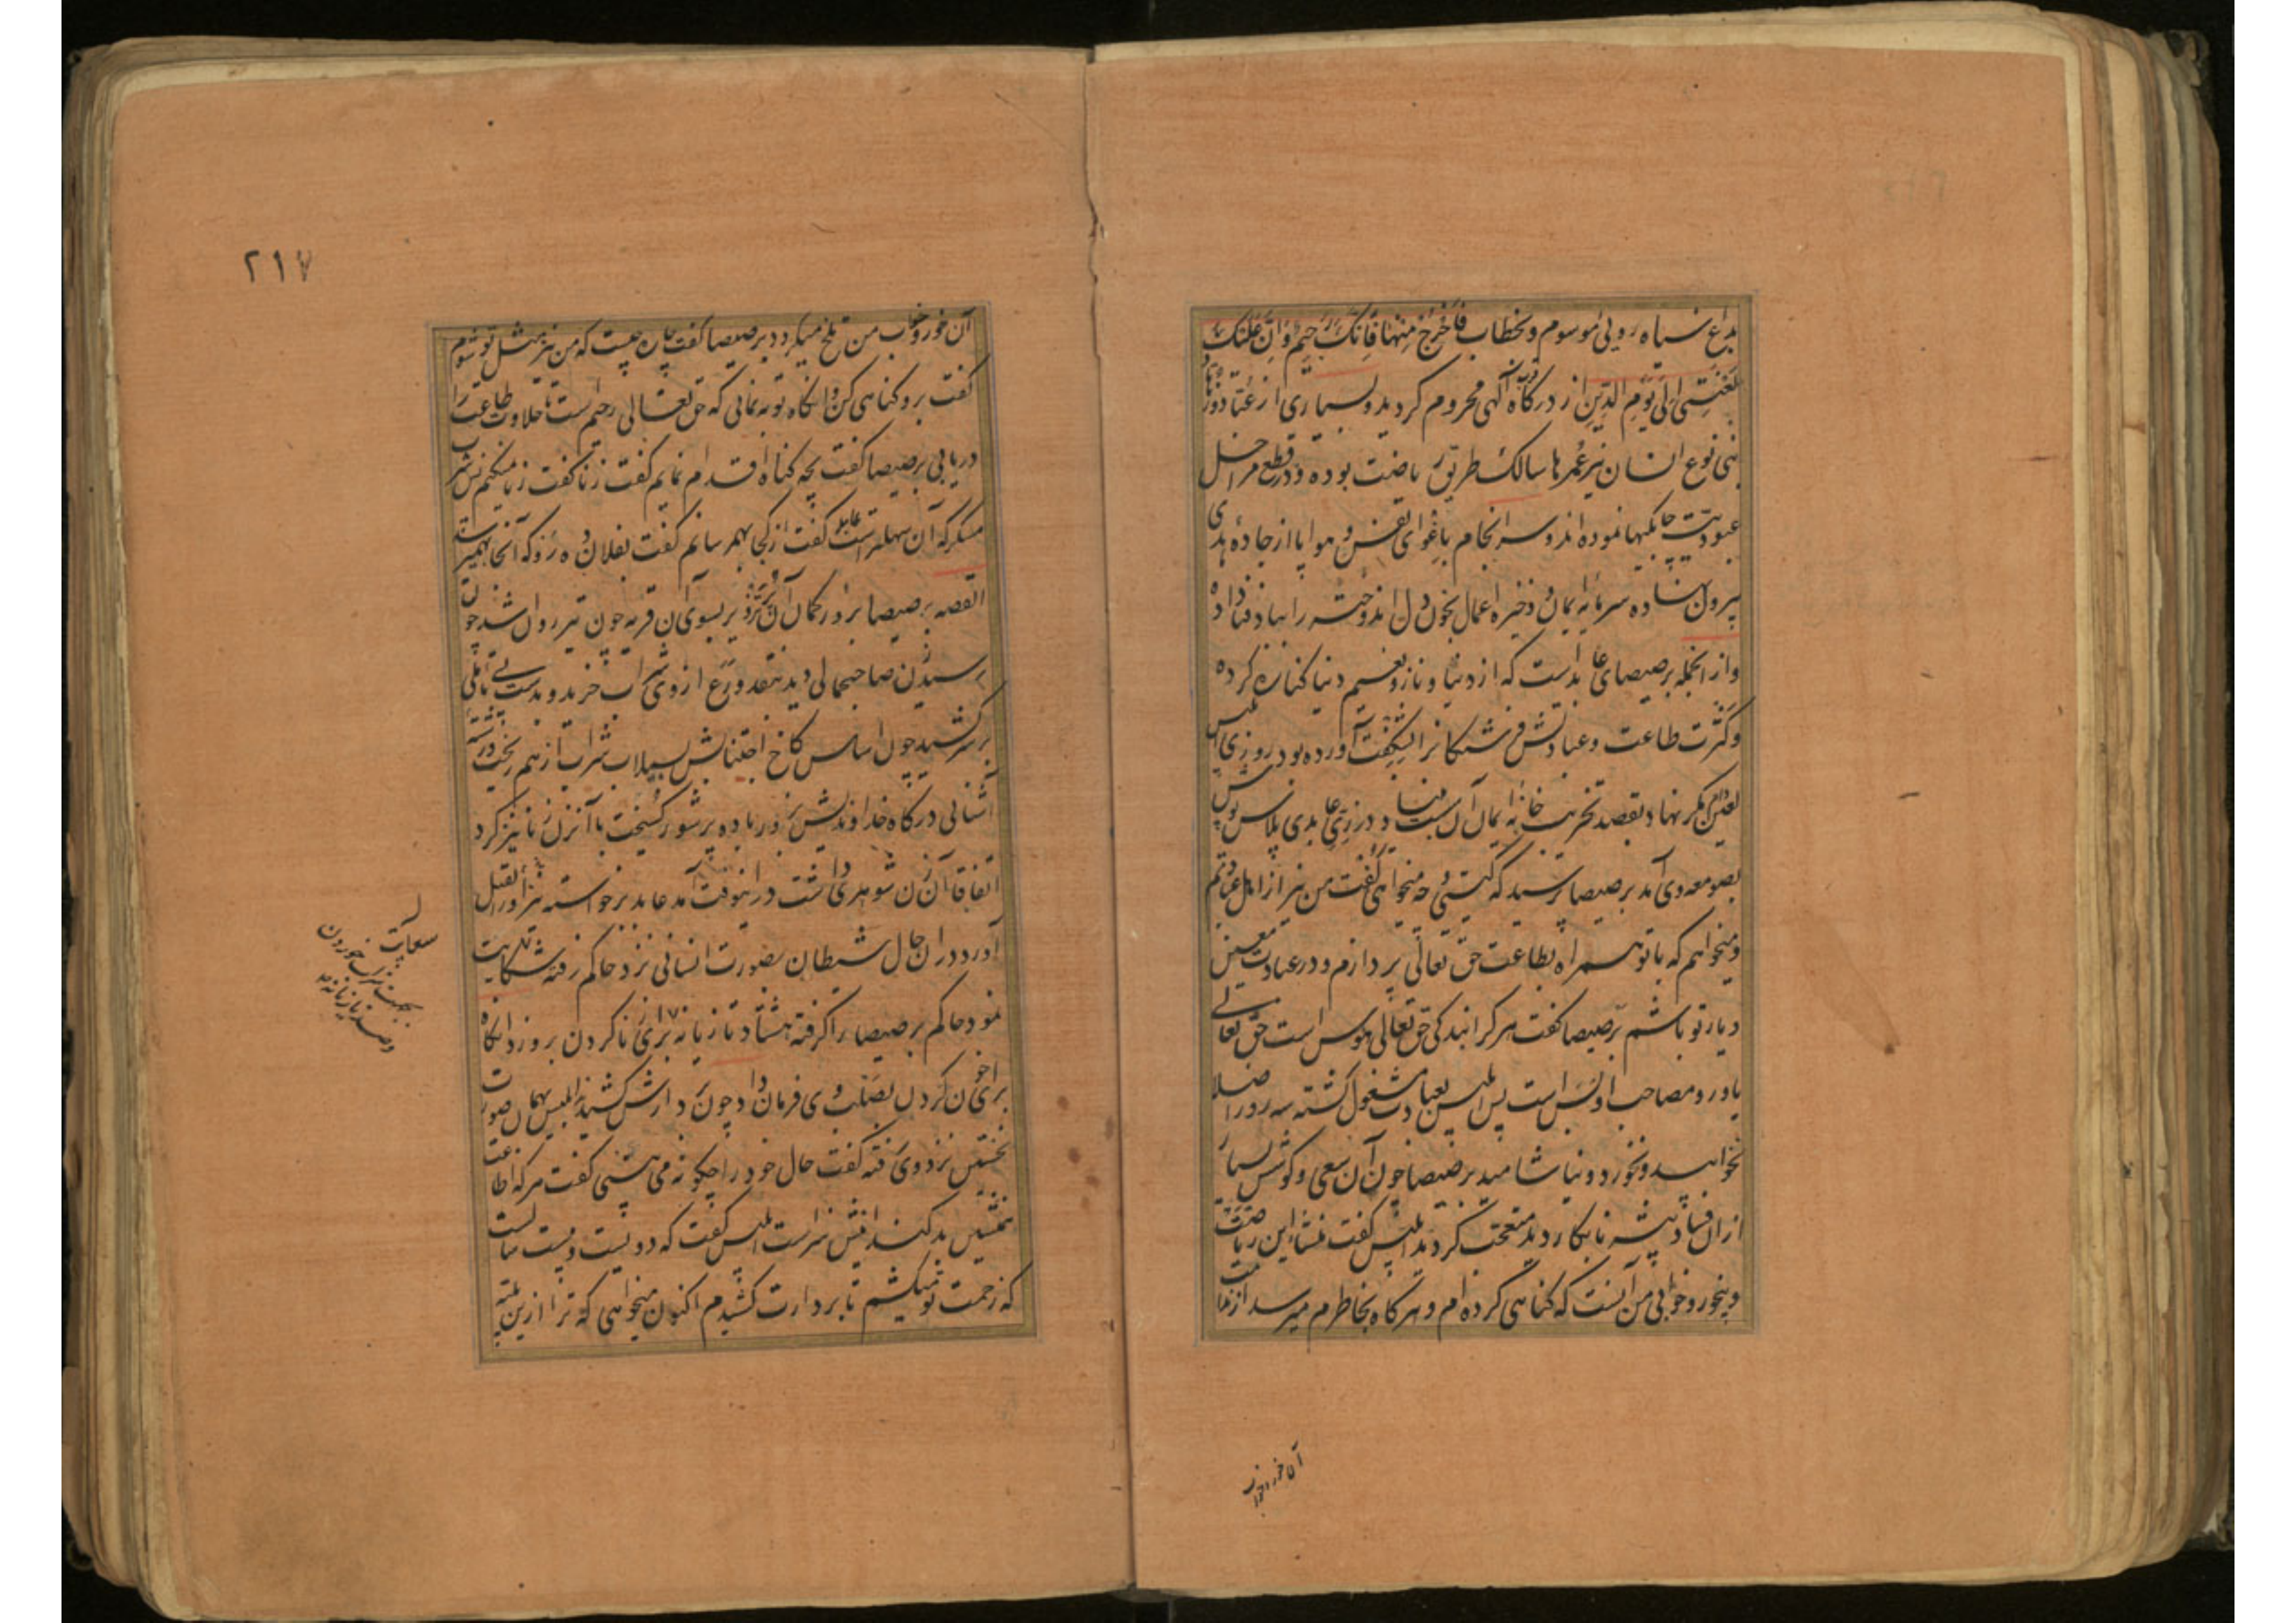 بداغ سیاه رویی موسوم و بخطاب فَاخْرُجْ مِنْهَا فَاِنَّكَ رَجِيمٌ وَاِنَّ عَلَيْكَ
لَعْنَتِي اِلَى يَوْمِ الدِّينِ از درگاه آلهی محروم گردید و بسیاری از عُبّاد و زُهّاد
بنی نوع انسان نیز عُمرها سالک طریق ریاضت بوده و در قطع مراحل
عبودیّت چابکیها نموده اند و سرانجام باغوای نفس و هوا پا از جادهٔ هدی
بیرون نهاده سرمایه ایمان و ذخیره اعمال بخون دل اندوخته را بباد فنا داده
و از انجمله برصیصای عابد است که از دنیا و ناز و نعیم دنیا کناره کرده
و کثرت طاعت و عبادتش فرشتگانرا بشگفت آورده بود روزی ابلیس
لعین دام مکر نهاده بقصد تخریب خانه ایمان آن در زیّ عابدی پلاس پوش
بصومعه وی آمد برصیصا پرسید که کیستی و چه میخواهی گفت من نیز از اهل عبادتم
و میخواهم که با تو همراه بطاعت حق تعالی پردازم و در عبادت معین
و یار تو باشم برصیصا گفت هر کرا بندگی حق تعالی هوس است حق تعالی
یاور و مصاحب او بس است پس ابلیس بعبادت مشغول گشته سه روز اصلا
نخوابید و نخورد و نیاشامید برصیصا چون آن سعی و کوشش بسیار
از ان فساد پیشه نابکار دید متعجب گردید ابلیس گفت منشاء این ریاضت
و بیخورد و خوابی من آنست که گناهی کرده ام و هر گاه بخاطرم میرسد از ندامت
آن خورد و خواب
٢١٧
آن خورد و خواب من تلخ میگردد برصیصا گفت چاره چیست که من نیز مثل تو شوم
گفت برو گناهی کن و انگاه توبه نمای که حق تعالی رحیم است تا حلاوت طاعت را
دریابی برصیصا گفت بچه گناه اقدام نمایم گفت زنا گفت زنا نمیکنم گفت شرب
مسکر که آن سهلتر است عابد گفت از کجا بهم رسانم گفت بفلان ده رو که آنجا بهم میرسد
القصه برصیصا بسوی آن قریه چون تیر روان شد چون
رسید زن صاحبجمالی دید بنقد ورع از وی شراب خرید و بدست بی تأملی
بر سر کشید چون اساس کاخ اجتنابش بسیلاب شراب از هم ریخت و رشته
آشنائی درگاه خداوندیش بزور باده پر شور گسیخت با آنزن زنا نیز کرد
اتفاقا آن زن شوهری داشت در اینوقت آمد عابد برخواسته نیز او را بقتل
آورد در ان حال شیطان بصورت انسانی نزد حاکم رفته شکایت
نمود حاکم برصیصا را گرفته هشتاد تازیانه برای زنا کردن بر وزد انگاه
برای خون کردن بصلب وی فرمان داد چون بر دارش کشیدند ابلیس بهمان صورت
نخستین نزد وی رفته گفت حال خود را چگونه می بینی گفت هر که اطاعت
همنشین بد کند اینش سزاست ابلیس گفت که دویست و بیست سالست
که زحمت تو میکشم تا بر دارت کشیدم اکنون میخواهی که ترا ازین بلیّه